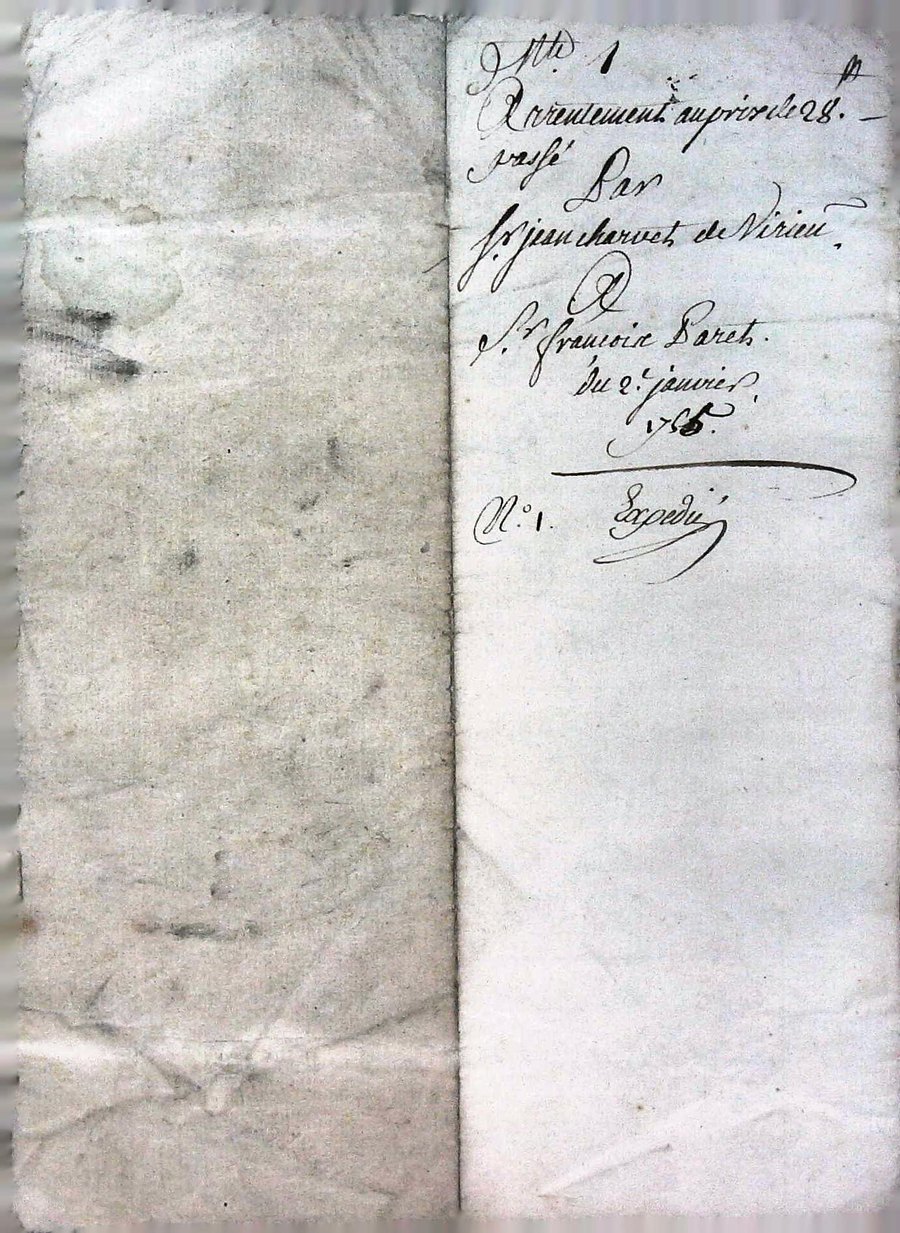 1
Arrentement au prix de 28.
passé
Par
Sr. jean charvet de Virieu.
A
Sr. francoix Paret.
du 2e. janvier
N.o 1. Expedié